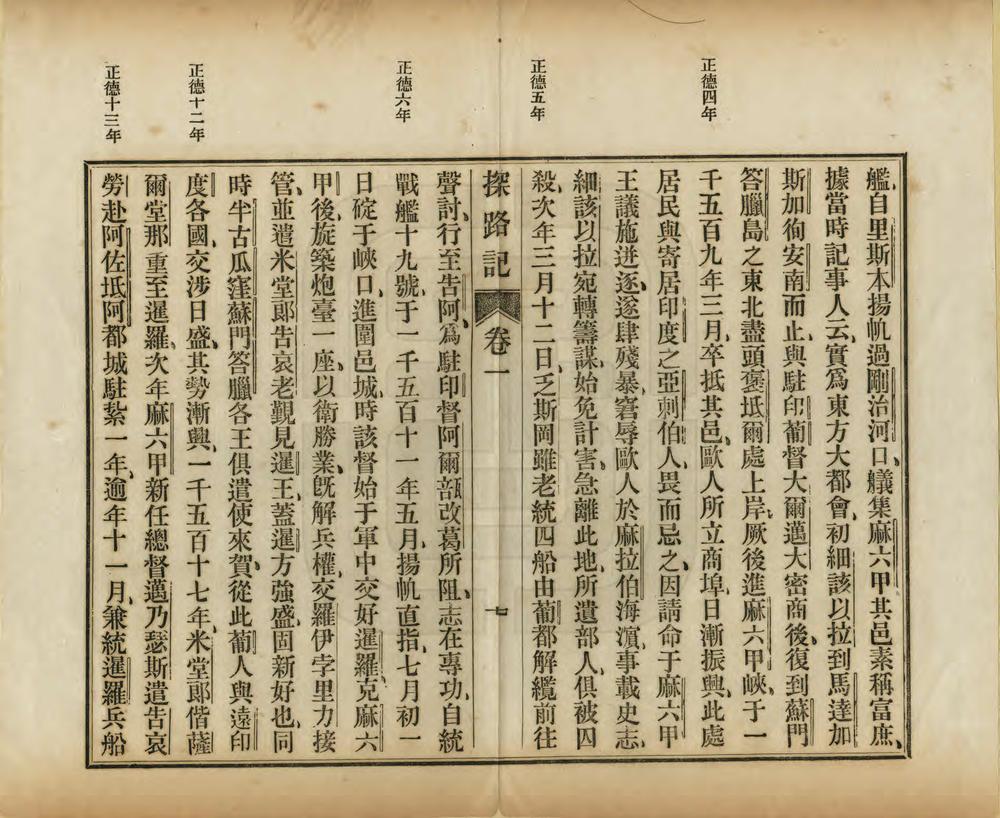 正德四年
正德五年
正德六年
正德十二年
正德十三年
艦、自里斯本揚帆過剛治河口、艤集麻六甲、其邑素稱富庶、
據當時記事人云、實爲東方大都會、初細該以拉到馬達加
斯加徇安南而止、與駐印葡督大爾邁大密商後、復到蘇門
答臘島之東北盡頭褒坻爾處上岸、厥後進麻六甲峽、于一
千五百九年三月、卒抵其邑、歐人所立商埠、日漸振興、此處
居民與寄居印度之亞刺伯人、畏而忌之、因請命于麻六甲
王議施迸逐、遂肆殘暴、窘辱歐人於麻拉伯海濵、事載史志、
細該以拉宛轉籌謀、始免計害、急離此地、所遣部人、俱被囚
殺、次年三月十二日、乏斯岡雖老統四船由葡都解纜前往
探路記 卷一 十七
聲討、行至苦阿、爲駐印督阿爾部改葛所阻、志在專功、自統
戰艦十九號、于一千五百十一年五月、揚帆直指、七月初一
日碇于峽口、進圍邑城、時該督始于軍中交好暹羅、克麻六
甲後、旋築炮臺一座、以衛勝業、旣解兵權、交羅伊孛里力接
管、並遣米堂郞告哀老覲見暹王、蓋暹方強盛、固新好也、同
時半古瓜窪蘇門答臘各王俱遣使來賀、從此葡人與遠印
度各國、交涉日盛、其勢漸興、一千五百十七年、米堂郞偕薩
爾堂那重至暹羅、次年麻六甲新任總督邁乃瑟斯遣告哀
勞赴阿佐坻阿都城駐紮一年、逾年十一月、兼統暹羅兵船